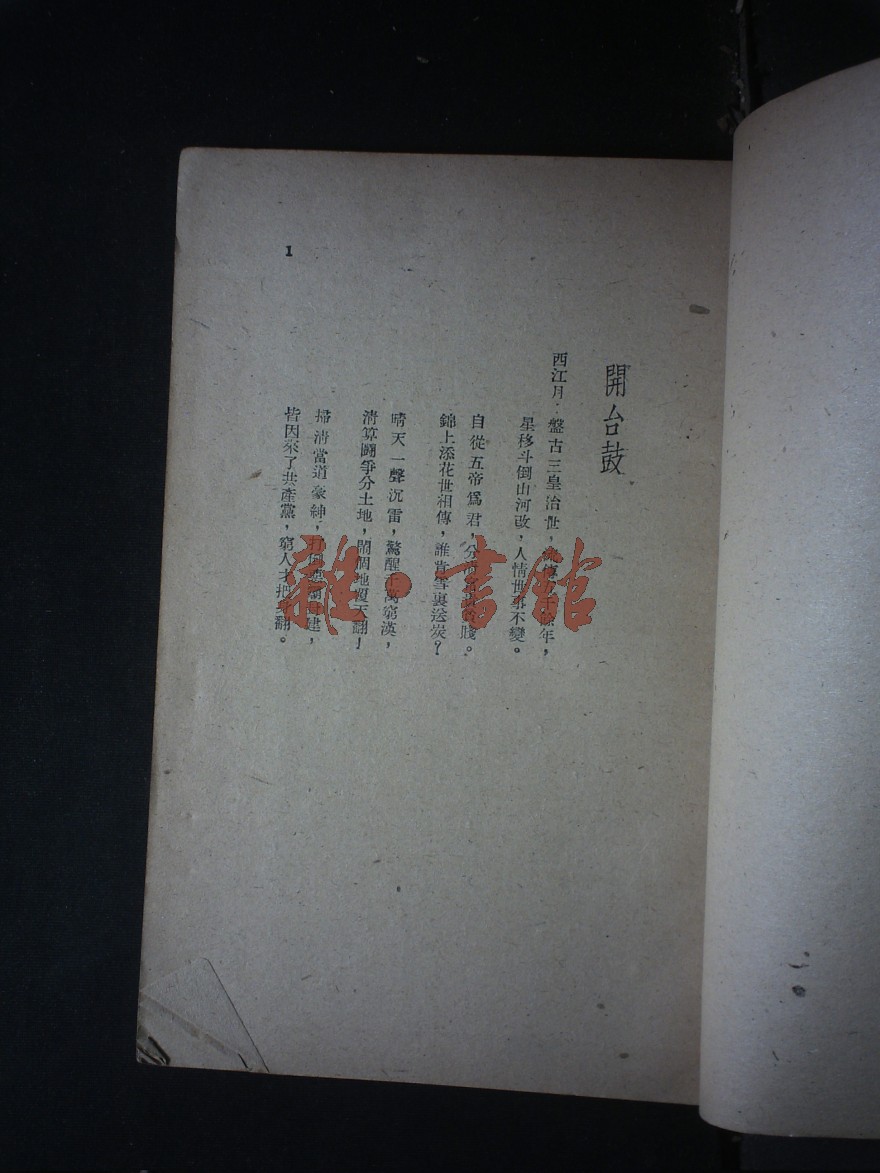 開台鼓
西江月：盤古三皇治世，年，
星移斗倒山河改，人情世事不變。
自從五帝爲君，分賤。
錦上添花世相傳，誰肯雪裏送炭？
晴天一聲沉雷，驚醒千萬窮漢，
淸算鬪爭分土地，鬧個地覆天翻！
掃淸當道豪紳，打倒建，
皆因來了共產黨，窮人才把身翻。
1
雜·書館